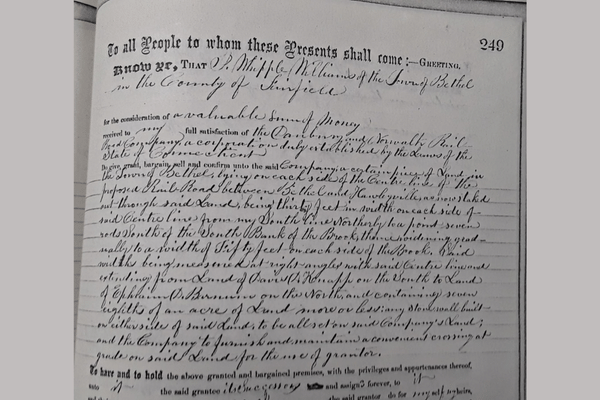 249
To all People to whom these Presents shall come:—GREETING.
Know Ye, THAT I, Whipple Williams of the Town of Bethel
in the County of Fairfield
for the consideration of a valuable sum of Money
received to my full satisfaction of the Danbury and Norwalk Rail
Road Company, a corporation duly established by the Laws of the
State of Connecticut
Do give, grant, bargain, sell and confirm unto the said Company, a certain piece of Land, in
the Town of Bethel, lying on each side of the Centre line of the
proposed Rail Road between Bethel and Hawleyville, as now staked
out through said Land, being thirty feet in width on each side of
said Centre lines from my South line Northerly to a point seven
rods South of the South Bank of the Brook, thence widening grad-
ually to a width of Fifty feet on each side of the Brook. Said
widths being measured at right angles with said Centre line and
extending from Land of Knapp on the South to Land
of on the North, and containing seven
eighths of an acre of Land more or less; any stone wall built
on either side of said Land, to be all set on said Company's Land;
and the Company to furnish and maintain a convenient crossing at
grade on said Land for the use of grantor.
To have and to hold the above granted and bargained premises, with the privileges and appurtenances thereof,
unto it the said grantee its successors and assigns forever, to it
the said grantor do for myself, heirs,